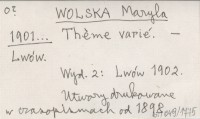 o?
WOLSKA Maryla
1901... Thème varié. —
Lwów.
Wyd. 2: Lwów 1902.
Utwory drukowane
w czasopismach od 1898